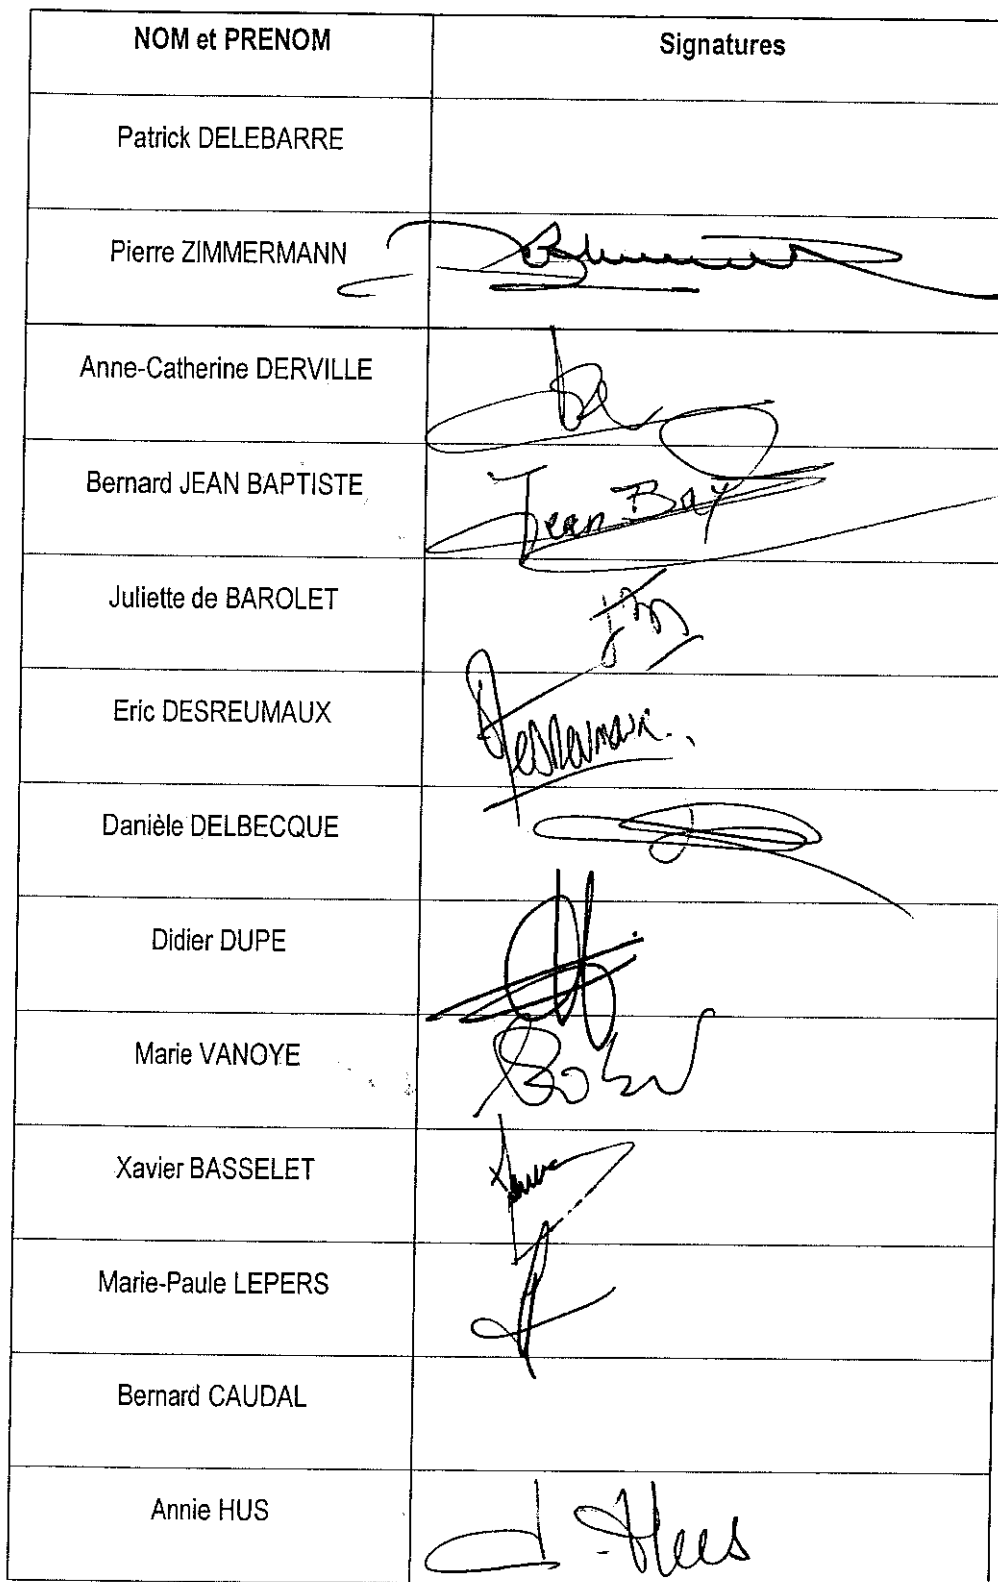 NOM et PRENOM Signatures
Patrick DELEBARRE
Pierre ZIMMERMANN
Anne-Catherine DERVILLE
Bernard JEAN BAPTISTE Jean Bap
Juliette de BAROLET
Eric DESREUMAUX Desreumaux
Danièle DELBECQUE
Didier DUPE
Marie VANOYE
Xavier BASSELET
Marie-Paule LEPERS
Bernard CAUDAL
Annie HUS A. Hus